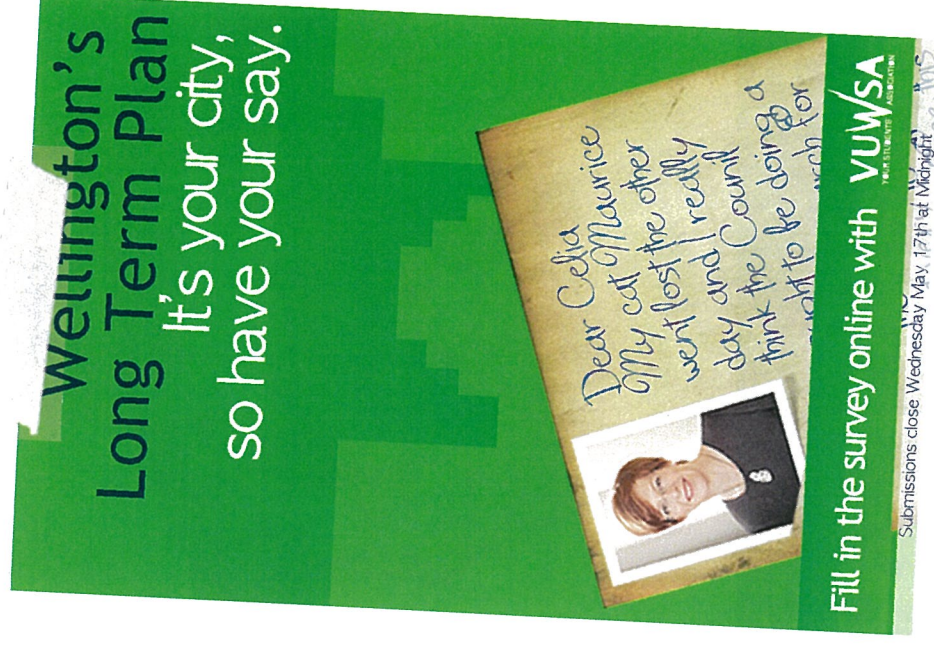 Wellington's
Long Term Plan
It's your city,
so have your say.
Dear Celia
My cat Maurice
went lost the other
day and I really
think the Council
ought to be doing a
for
Fill in the survey online with
VUWSA
YOUR STUDENTS' ASSOCIATION
Submissions close Wednesday May 17th at Midnight